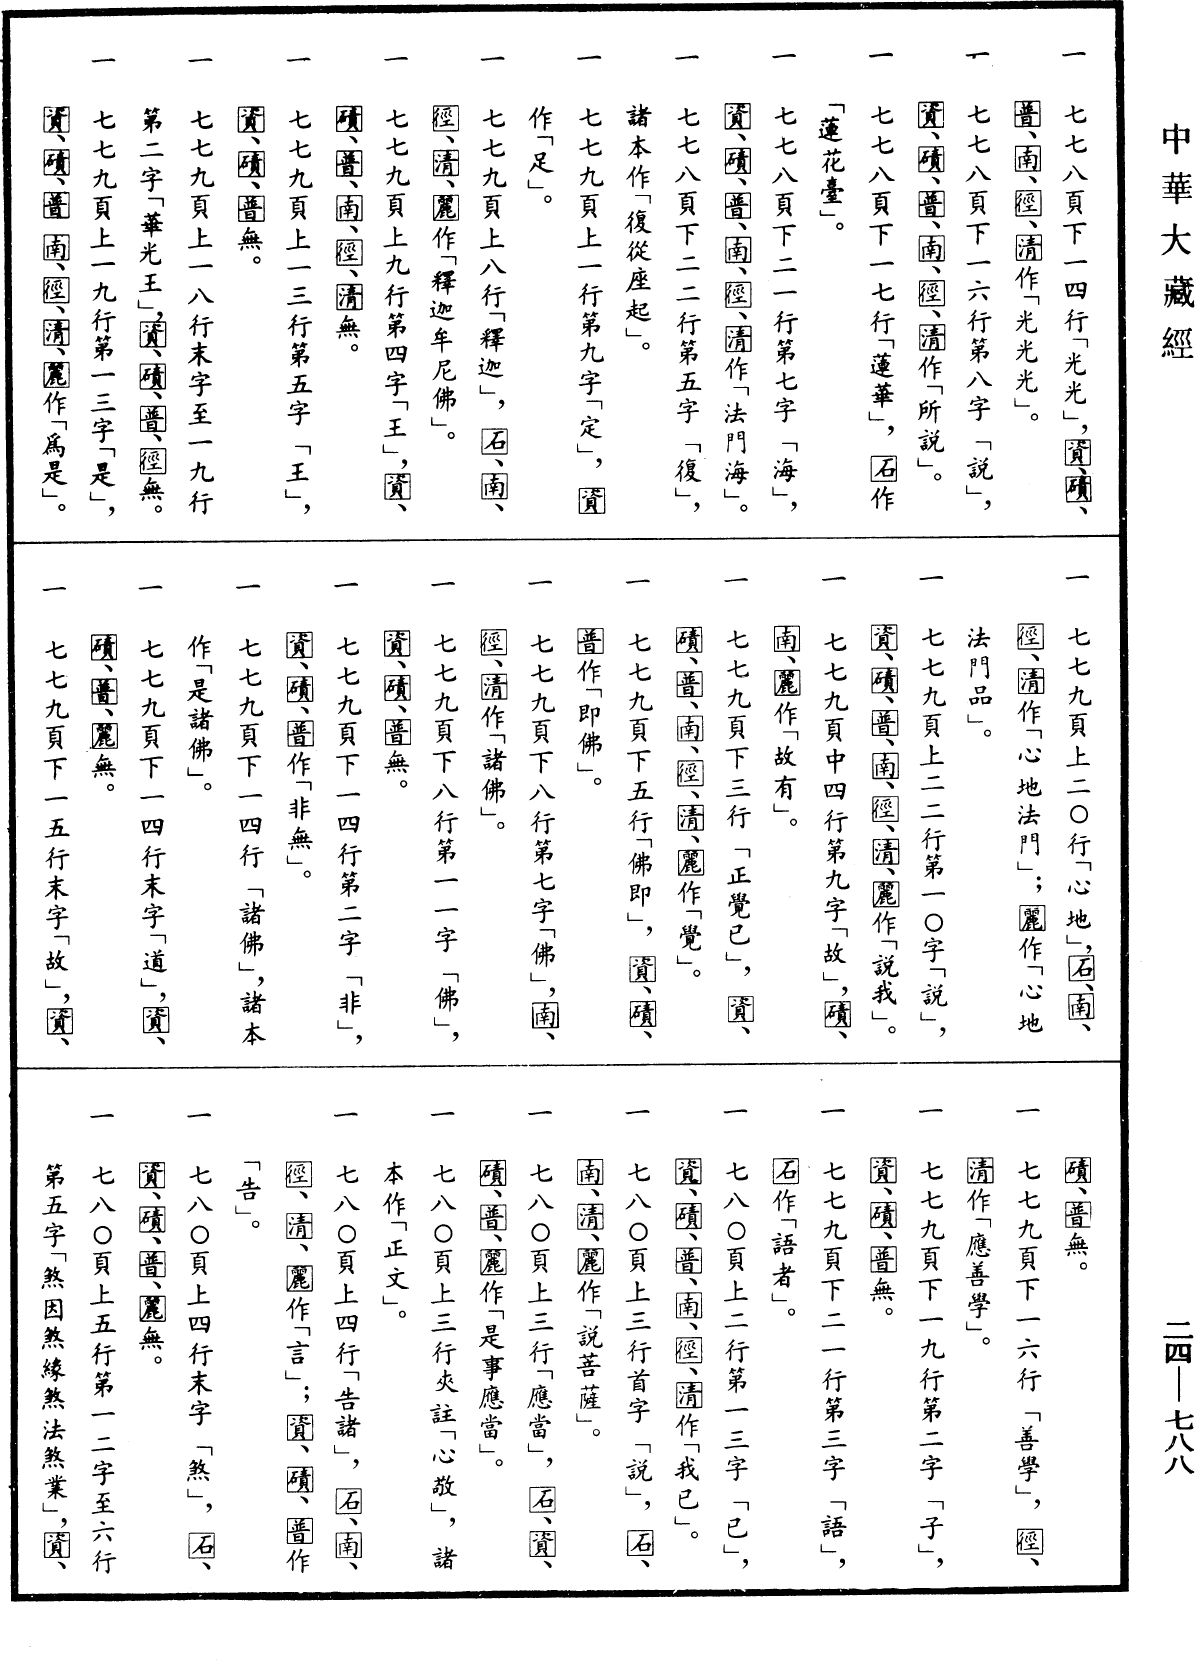 中華大藏經
一　七七八頁下一四行「光光」，資、磧、
普、南、徑、清作「光光光」。
一　七七八頁下一六行第八字「説」，
資、磧、普、南、徑、清作「所説」。
一　七七八頁下一七行「蓮華」，石作
「蓮花臺」。
一　七七八頁下二一行第七字「海」，
資、磧、普、南、徑、清作「法門海」。
一　七七八頁下二二行第五字「復」，
諸本作「復從座起」。
一　七七九頁上一行第九字「定」，資
作「足」。
一　七七九頁上八行「釋迦」，石、南、
徑、清、麗作「釋迦牟尼佛」。
一　七七九頁上九行第四字「王」，資、
磧、普、南、徑、清無。
一　七七九頁上一三行第五字「王」，
資、磧、普無。
一　七七九頁上一八行末字至一九行
第二字「華光王」，資、磧、普、徑無。
一　七七九頁上一九行第一三字「是」，
資、磧、普、南、徑、清、麗作「爲是」。
一　七七九頁上二〇行「心地」，石、南、
徑、清作「心地法門」；麗作「心地
法門品」。
一　七七九頁上二二行第一〇字「説」，
資、磧、普、南、徑、清、麗作「説我」。
一　七七九頁中四行第九字「故」，磧、
南、麗作「故有」。
一　七七九頁下三行「正覺已」，資、
磧、普、南、徑、清、麗作「覺」。
一　七七九頁下五行「佛即」，資、磧、
普作「即佛」。
一　七七九頁下八行第七字「佛」，南、
徑、清作「諸佛」。
一　七七九頁下八行第一一字「佛」，
資、磧、普無。
一　七七九頁下一四行第二字「非」，
資、磧、普作「非無」。
一　七七九頁下一四行「諸佛」，諸本
作「是諸佛」。
一　七七九頁下一四行末字「道」，資、
磧、普、麗無。
一　七七九頁下一五行末字「故」，資、
磧、普無。
一　七七九頁下一六行「善學」，徑、
清作「應善學」。
一　七七九頁下一九行第二字「子」，
資、磧、普無。
一　七七九頁下二一行第三字「語」，
石作「語者」。
一　七八〇頁上二行第一三字「已」，
資、磧、普、南、徑、清作「我已」。
一　七八〇頁上三行首字「説」，石、
南、清、麗作「説菩薩」。
一　七八〇頁上三行「應當」，石、資、
磧、普、麗作「是事應當」。
一　七八〇頁上三行夾註「心敬」，諸
本作「正文」。
一　七八〇頁上四行「告諸」，石、南、
徑、清、麗作「言」；資、磧、普作
「告」。
一　七八〇頁上四行末字「煞」，石、
資、磧、普、麗無。
一　七八〇頁上五行第一二字至六行
第五字「煞因煞緣煞法煞業」，資、
二四—七八八